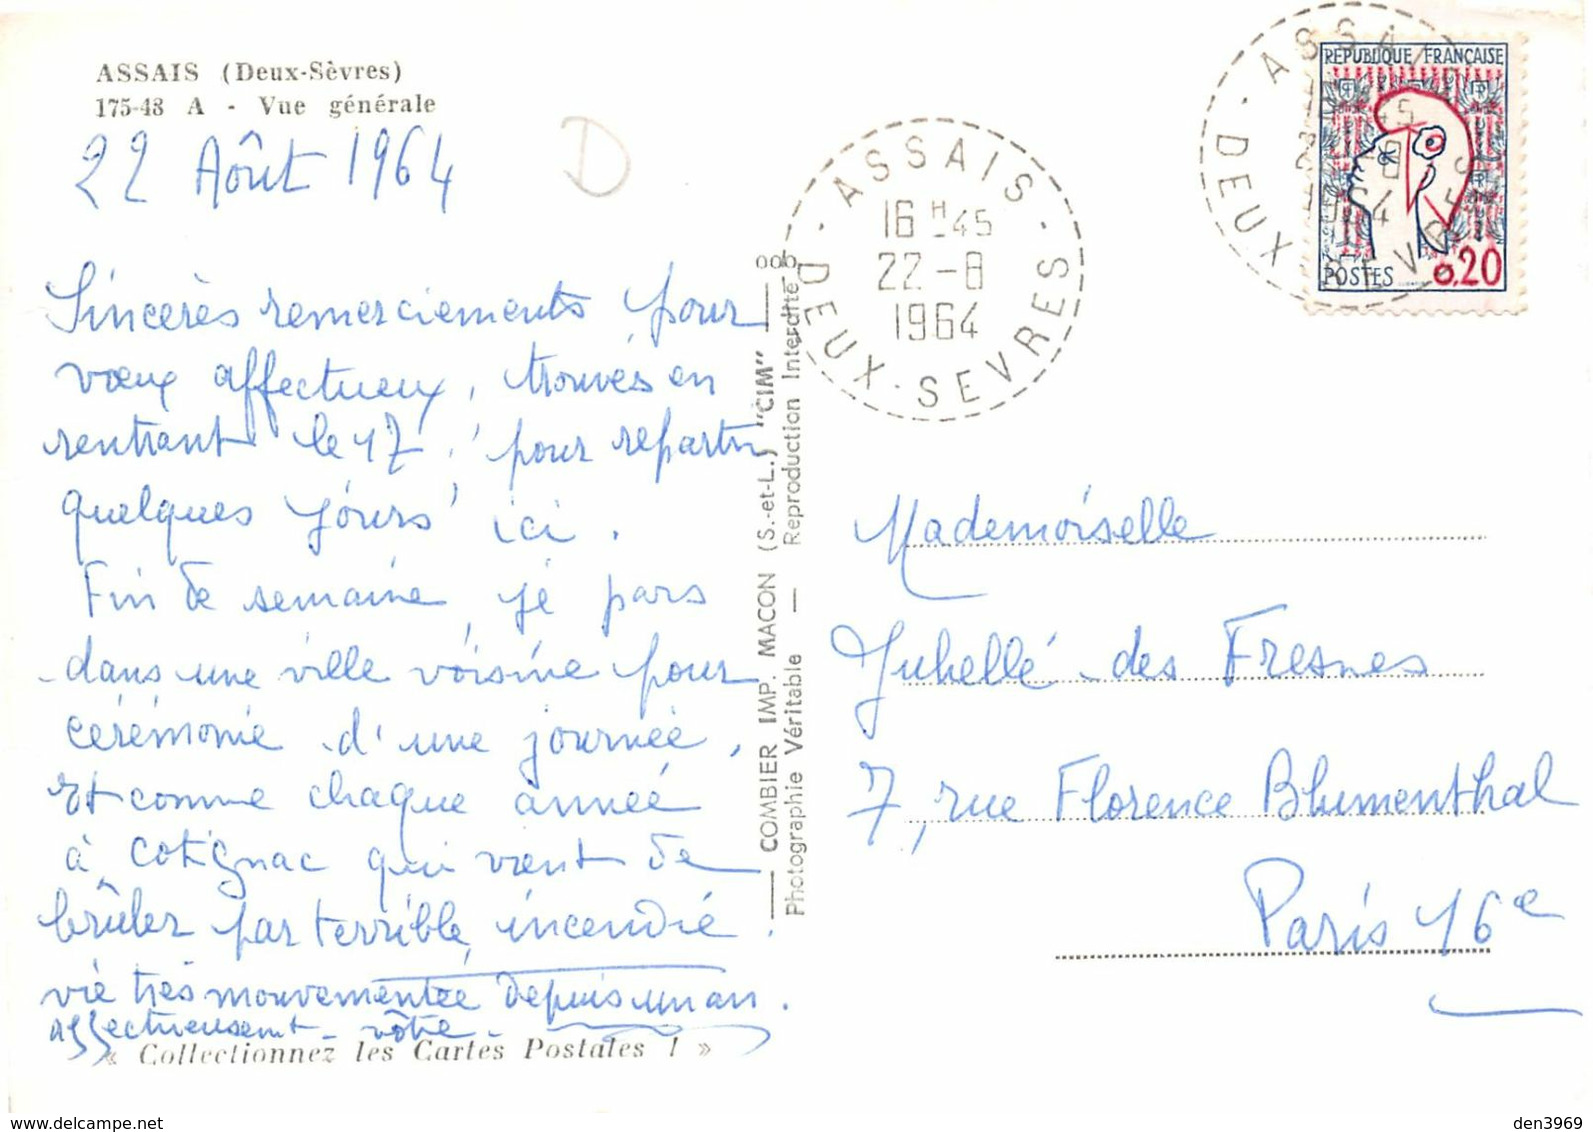 ASSAIS (Deux-Sèvres)
175-48 A - Vue générale
22 Août 1964
Sincères remerciements pour
vœux affectueux, trouvés en
rentrant le 17, pour repartir
quelques jours ici.
Fin de semaine, je pars
dans une ville voisine pour
cérémonie d'une journée,
et comme chaque année
à Cotignac qui vient de
brûler par terrible incendie.
vie très mouvementée depuis un an.
affectueusement vôtre
« Collectionnez les Cartes Postales ! »
COMBIER IMP. MACON (S.-et-L.) "CIM"
Photographie Véritable — Reproduction Interdite
ASSAIS
16 H 45
22 - 8
1964
DEUX - SEVRES
ASSAIS
DEUX SEVRES
REPUBLIQUE FRANÇAISE
POSTES 0,20
Mademoiselle
Juhellé des Fresnes
7, rue Florence Blumenthal
Paris 16e
D
www.delcampe.net
den3969